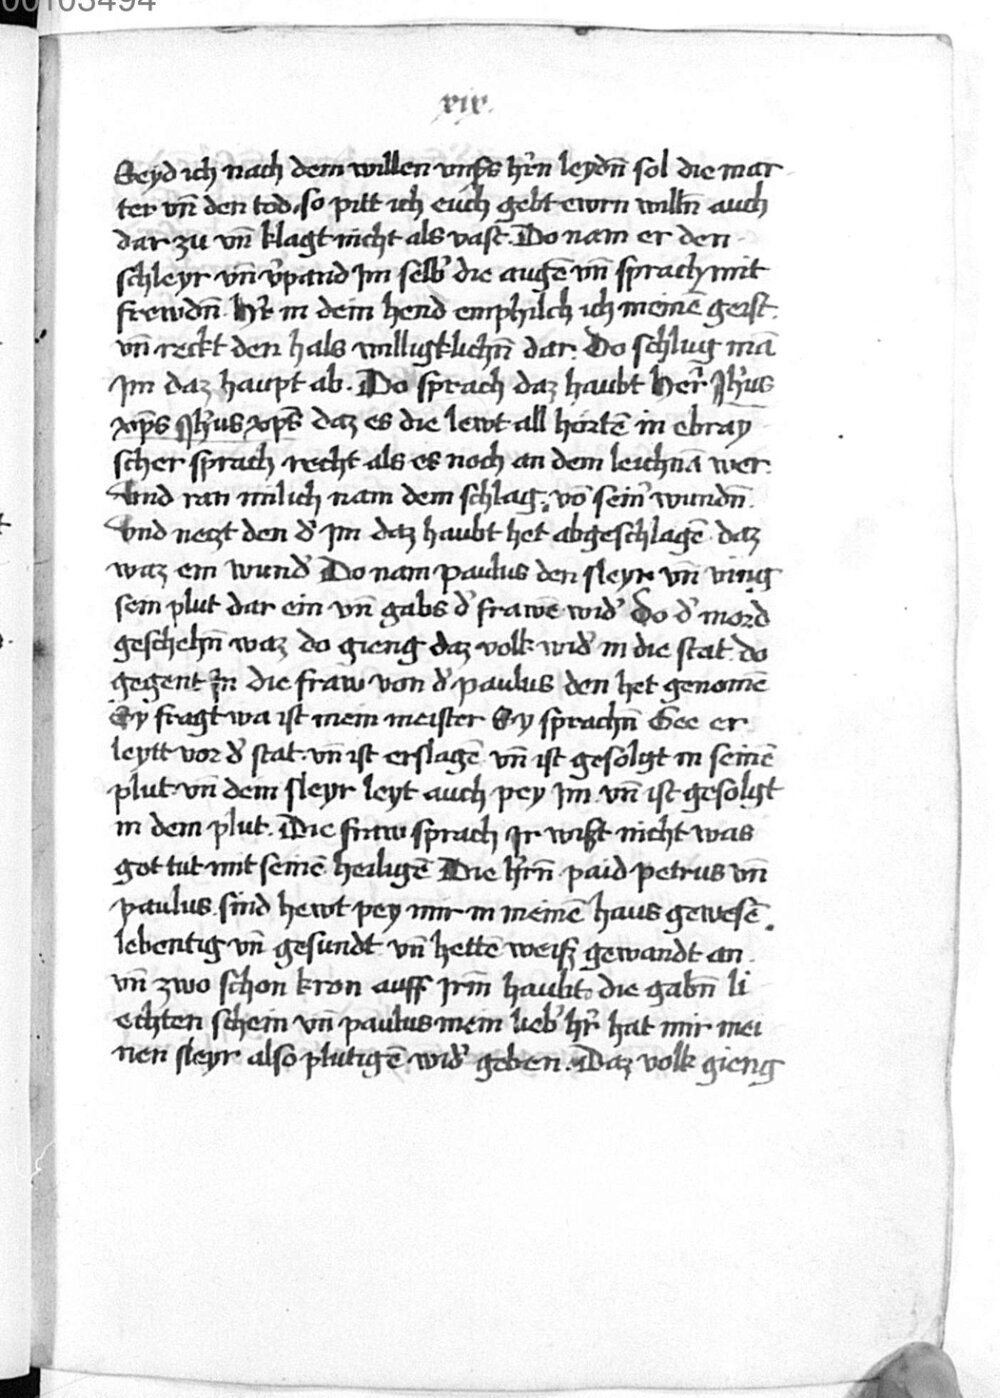 00103494
xix.
Seyd ich nach dem willen unsʼs hr̄n leydn̄ sol die mar
ter vn̄ den tod. so pitt ich euch gebt ewrn willn̄ auch
dar zu vn̄ klagt nicht als vast. Do nam er den
schleyr vn̄ v̓pand Im selb̓ die augē vn̄ sprach mit
frewdn̄. Hr̓ in dein hend emphilch ich meinē geist.
vn̄ reckt den hals willigklichn̄ dar. Do schlug mā
Im daz haupt ab. Do sprach daz haubt her̄ Jh̓us
xp̄s Jh̓us xp̄s daz es die lewt all hortē in ebray
scher sprach recht als es noch an dem leichnā wer.
Vnd ran milich nam dem schlag. vō sein̓ wundn̄.
Vnd netzt den d̓ Im daz haubt het abgeschlagē daz
waz ein wund̓ Do nam paulus den sleyr vn̄ ving
sein plut dar ein vn̄ gabs d̓ frawē wid̓ Do d̓ mord
geschehn̄ waz do gieng daz volk wid̓ in die stat. do
gegent In die fraw von d̓ paulus den het genomē
Sy fragt wa ist mein meister Sy sprachn̄ See er
leytt vor d̓ stat. vn̄ ist erslagē vn̄ ist gesolgt in seinē
plut. vn̄ dein sleyr leyt auch pey Im. vn̄ ist gesolgt
in dem plut. Die fraw sprach Ir wißt nicht was
got tut mit seinē heiligē Die hr̓n̄ paid petrus vn̄
paulus. sind hewt pey mir in meinē haus gewesē.
lebentig vn̄ gesundt vn̄ hettē weiß gewandt an.
vn̄ zwo schon kron auff irm̄ haubt. die gabn̄ li
echten schein vn̄ paulus mein lieb̓ hr̓ hat mir mei
nen sleyr also plutigē wid̓ geben. Daz volk gieng